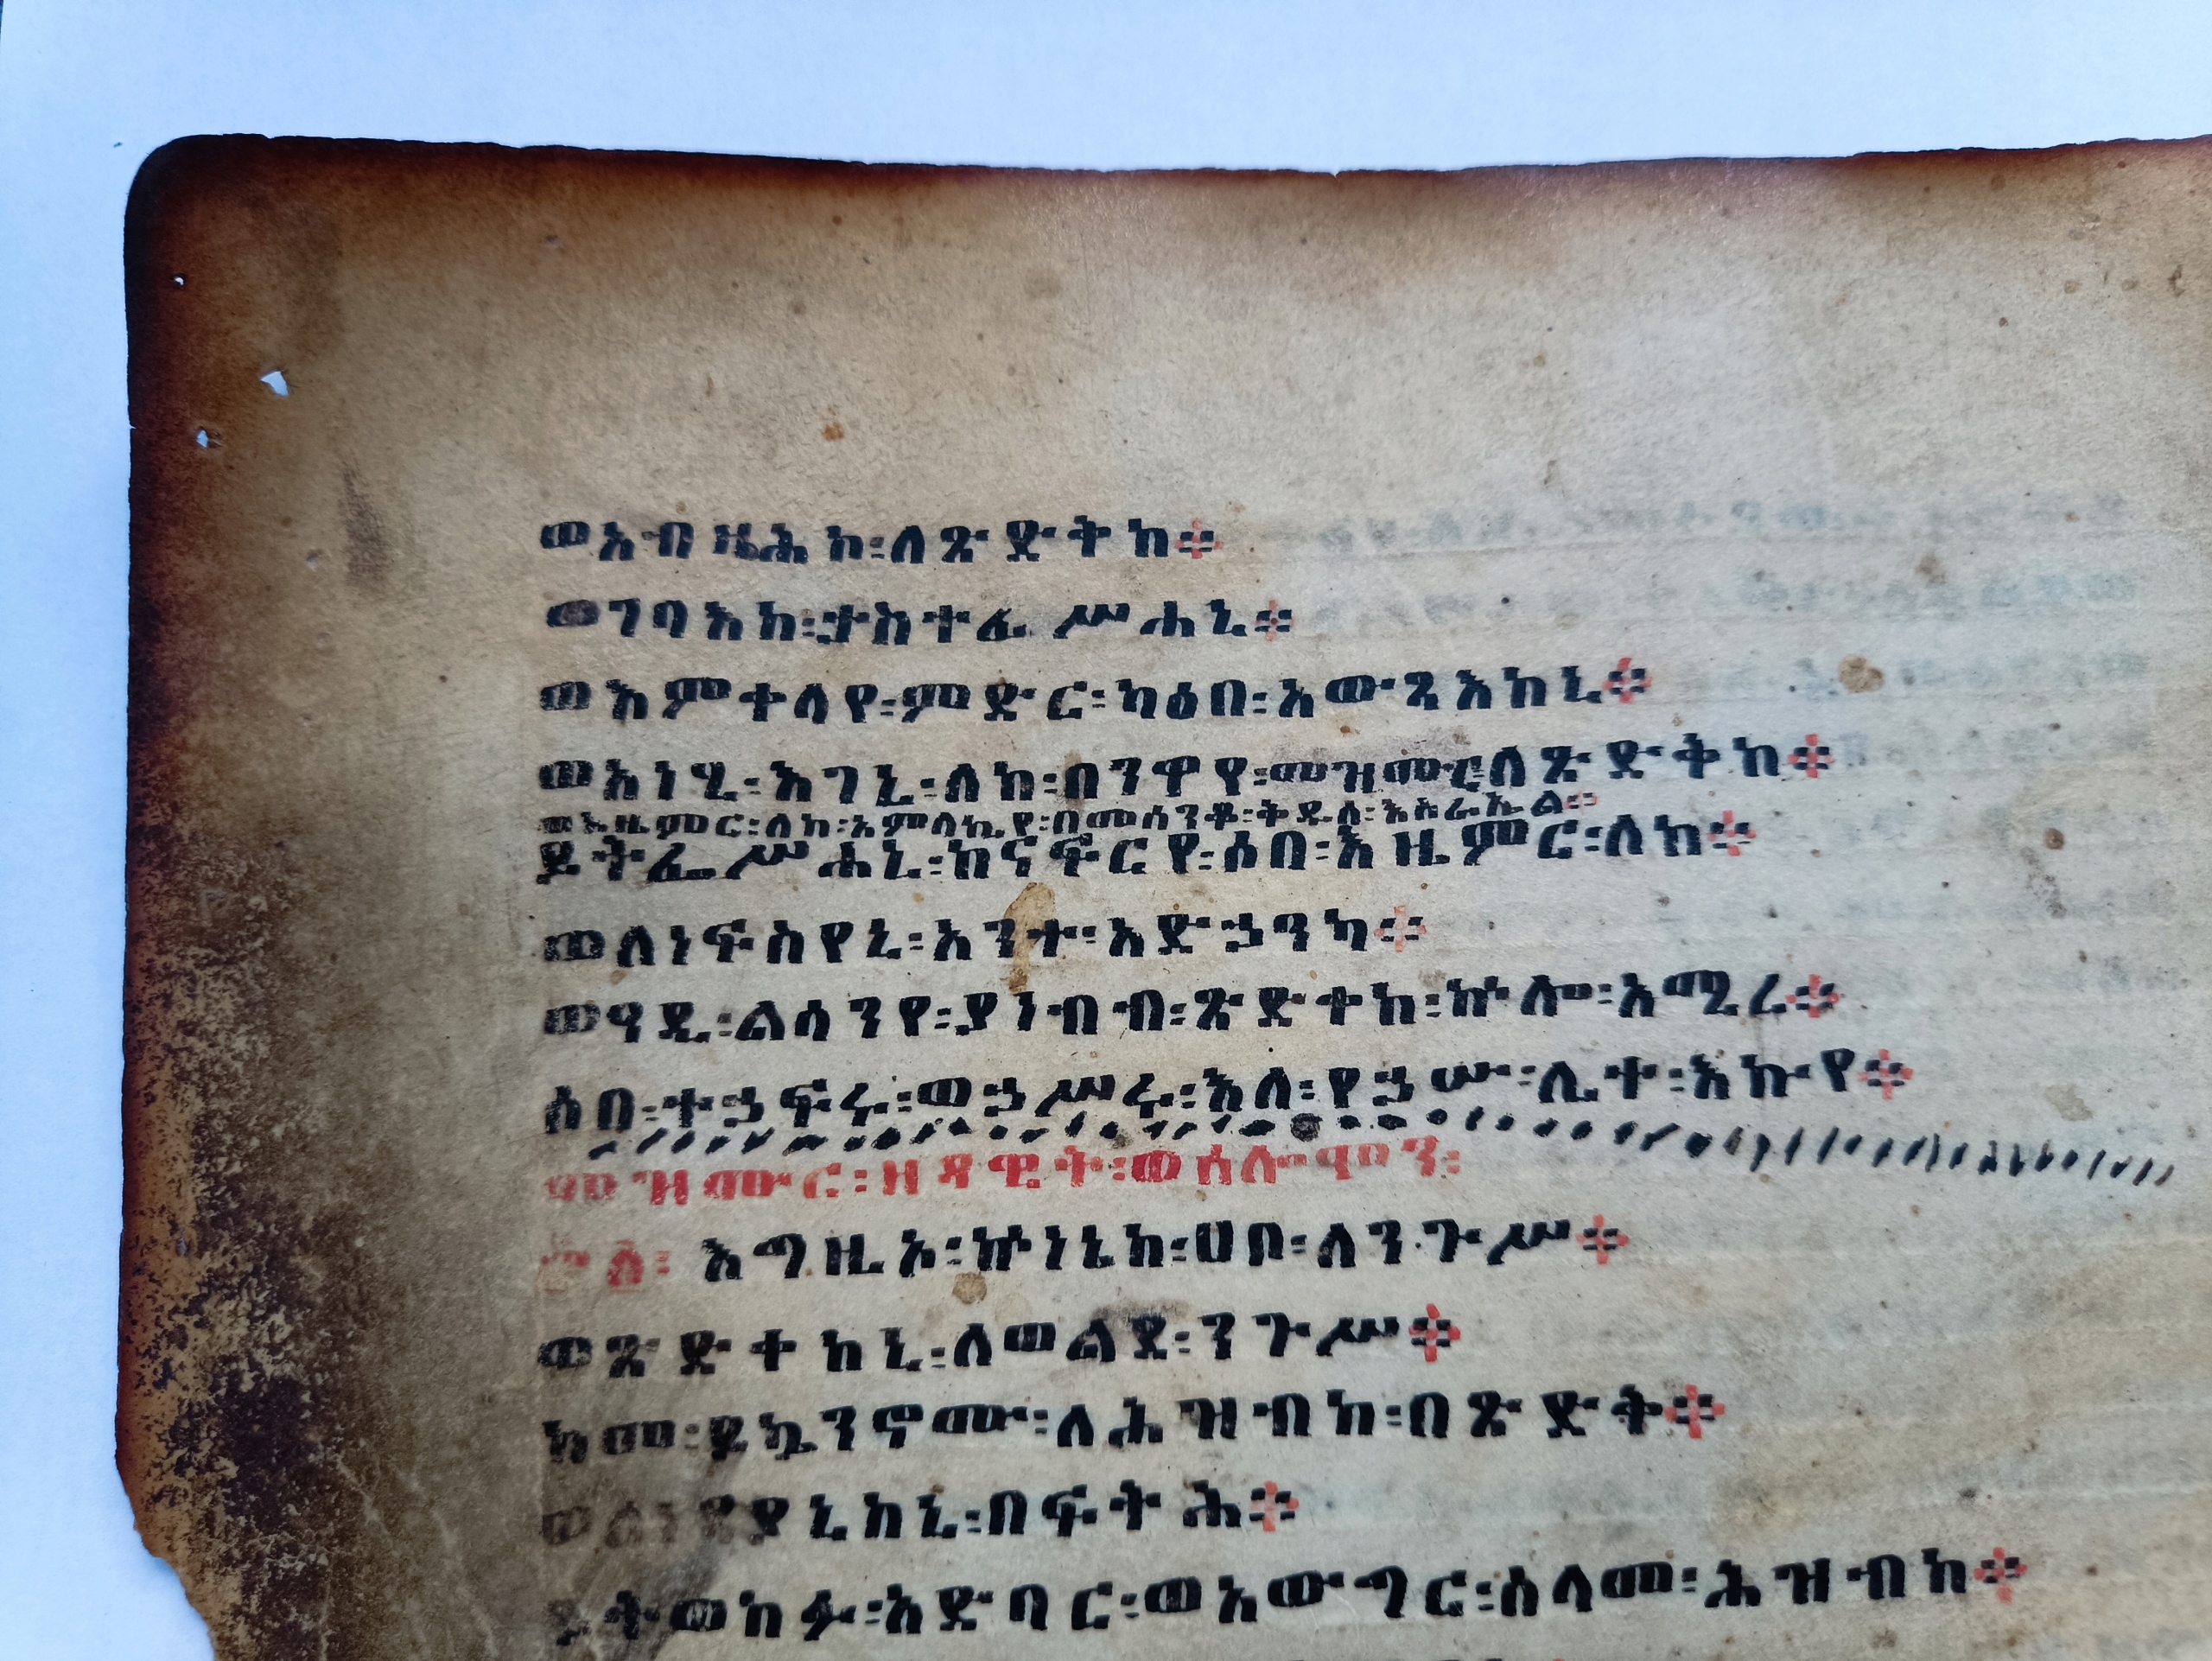 ወአብዛሕከ፡ለጽድትከ፨
ወገባእከ፡ታስተፌሥሐኒ፨
ወእምተላየ፡ምድር፡ካዕበ፡አውጻእከኒ፨
ወአነሂ፡እገኒ፡ለከ፡በንዋየ፡መዝሙር፡ለጽድቅከ፨
ወእዜምር፡ለከ፡አምላኪየ፡በመሰንቆ፡ቅዱሰ፡እስራኤል፨
ይትፌሥሐኒ፡ከናፍርየ፡ሰበ፡እዜምር፡ለከ፨
ወለነፍስየኒ፡አንተ፡አድኃንካ፨
ወዓዲ፡ልሳንየ፡ያነብብ፡ጽድተከ፡ኵሎ፡አሚረ፨
ሰበ፡ተኃፍሩ፡ወኃሥሩ፡እለ፡የኃሡ፡ሊተ፡እኩየ፨
መዝሙር፡ዘዳዊት፡ወሰሎሞን፡
እግዚኦ፡ኵነኔከ፡ሀቦ፡ለንጉሥ፨
ወጽድተከኒ፡ለወልደ፡ንጉሥ፨
ከመ፡ይኴንኖሙ፡ለሕዝብከ፡በጽድቅ፨
ወለነዳያኒከኒ፡በፍትሕ፨
ይትወከፉ፡አድባር፡ወአውግር፡ሰላመ፡ሕዝብከ፨